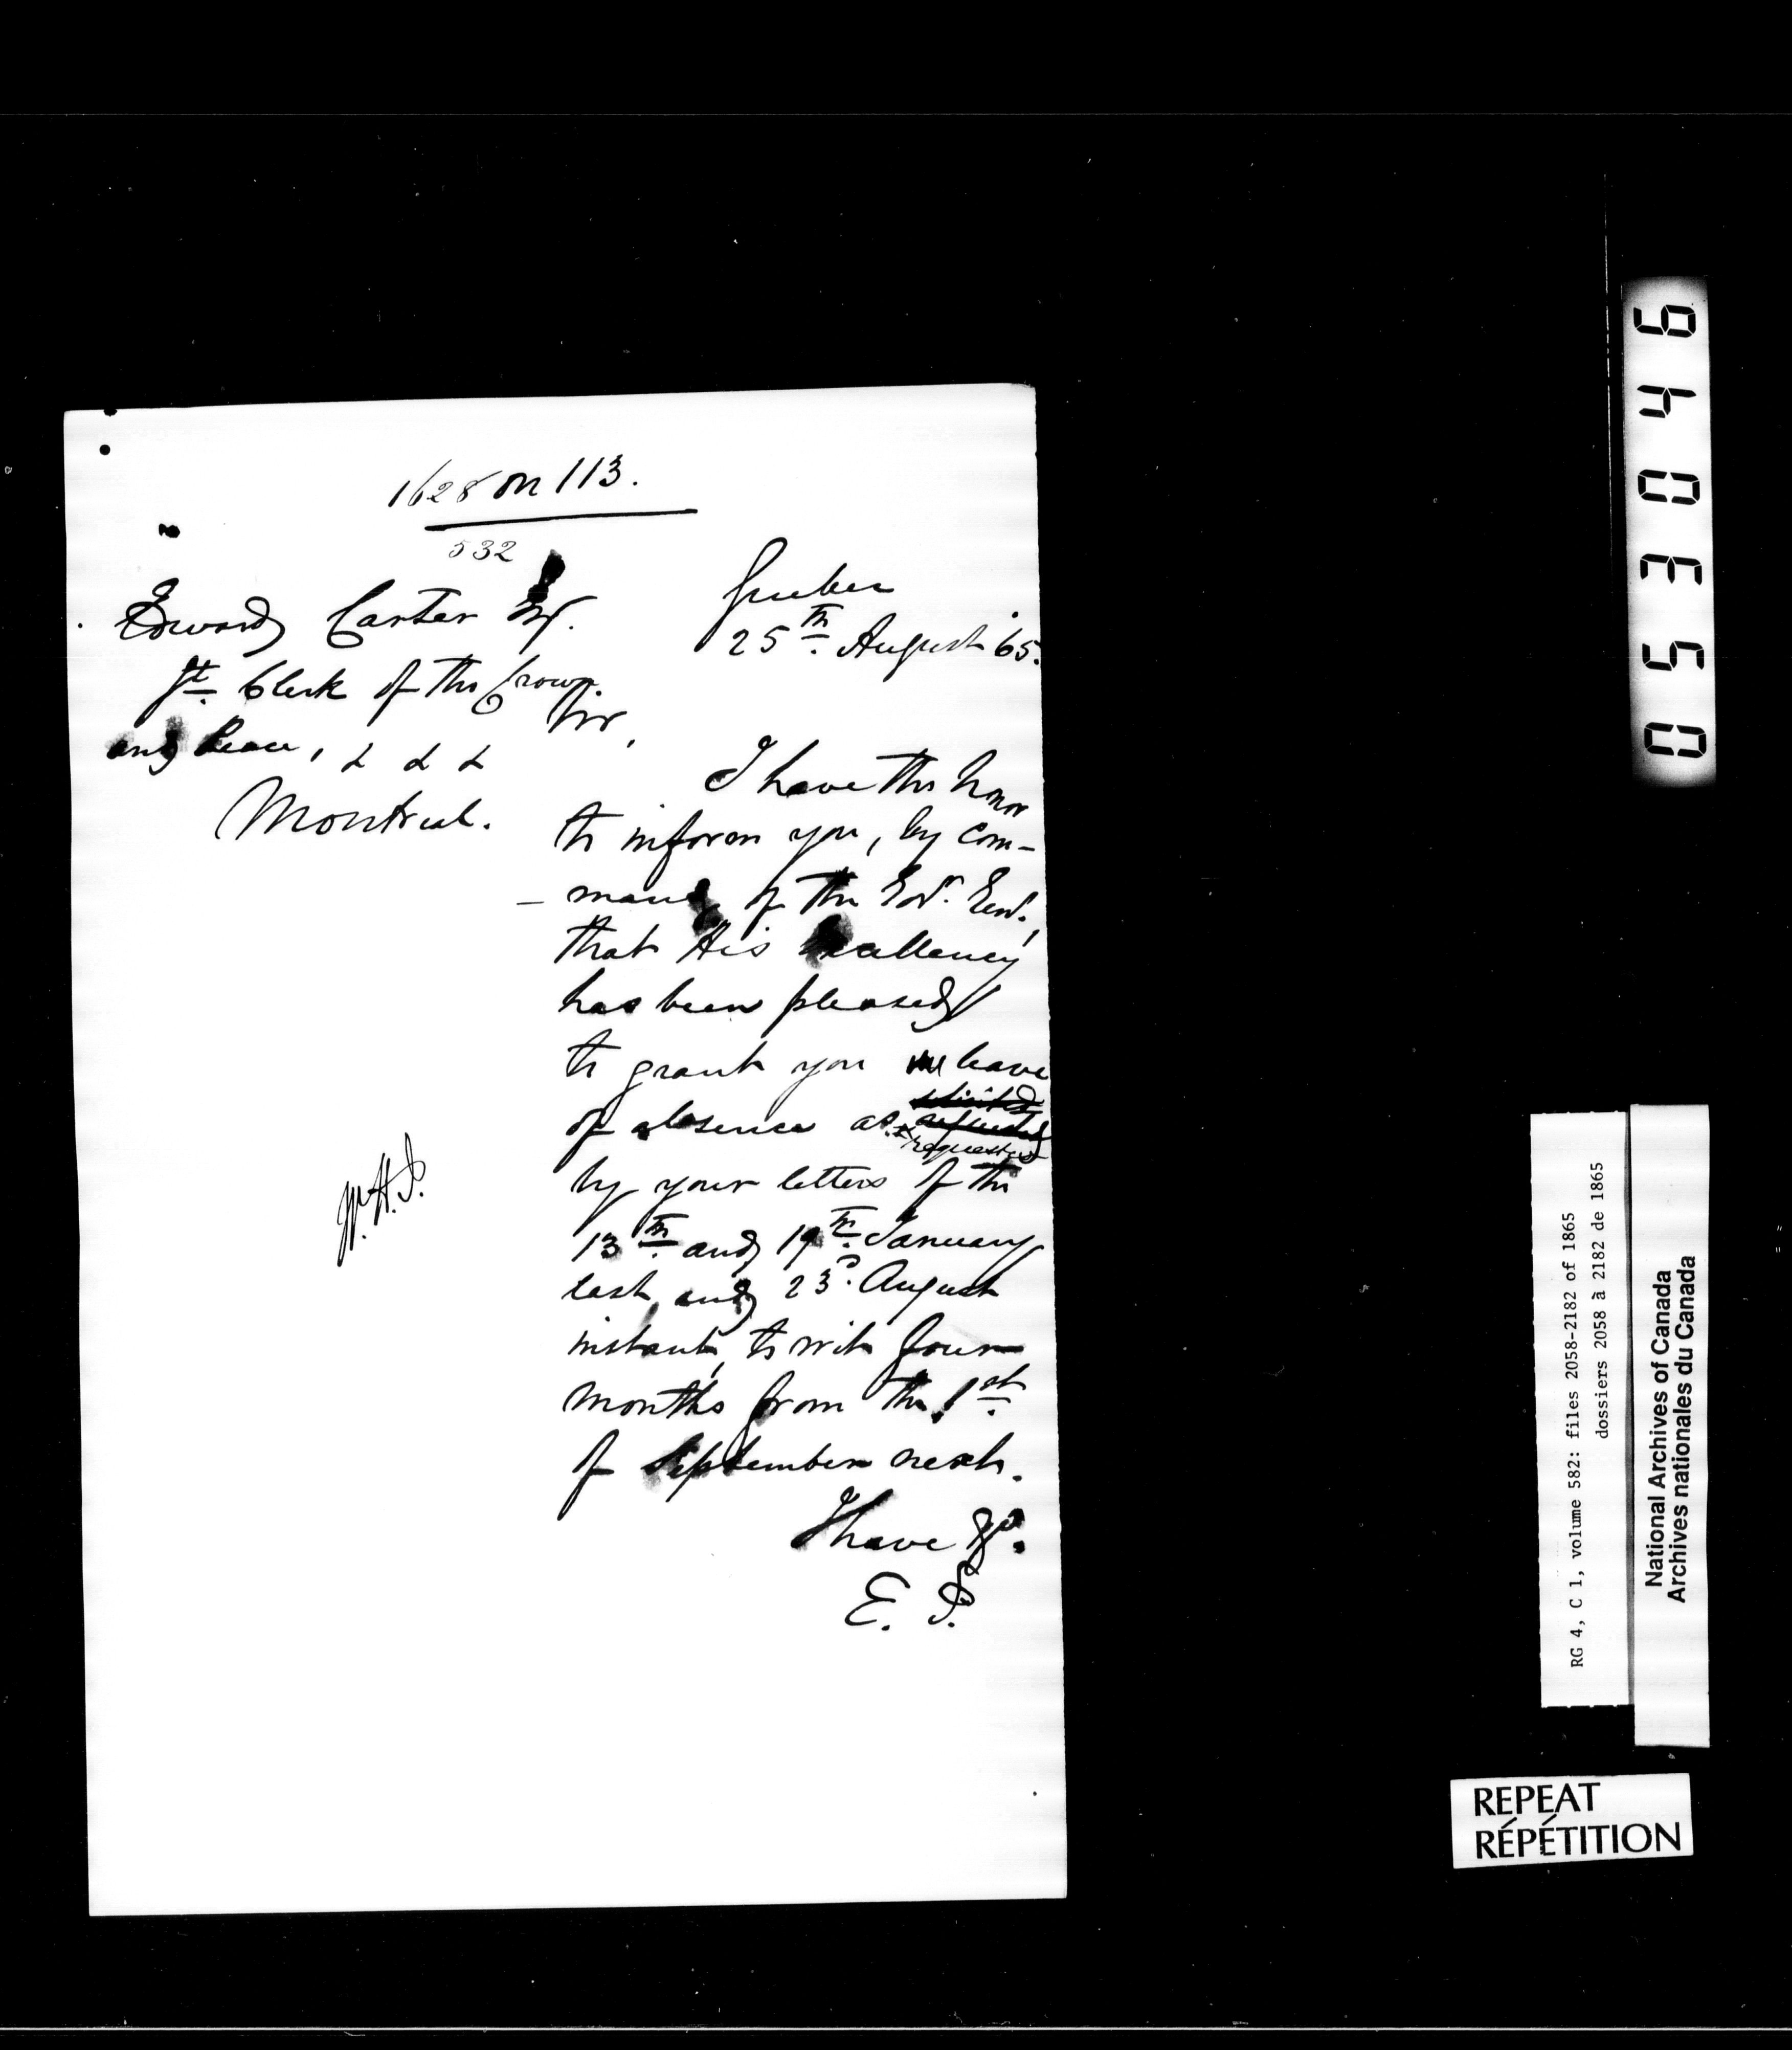 1628 on 113.
532
Quebec
25th. August '65.
Edward Carter Esq.
Jt. Clerk of the Crown
and Peace, & & &
Montreal.
Sir,
I have the honor
to inform you, by com-
-mand of the Gov. Genl.,
that His Excellency
has been pleased
to grant you leave
of absence as
requested
by your letters of the
13th. and 19th. January
last, and 23d. August
instant, to wit four
months from the 1st.
of September next.
I have &c.
E. P.
053046
RG 4, C 1, volume 582: files 2058-2182 of 1865
dossiers 2058 à 2182 de 1865
National Archives of Canada
Archives nationales du Canada
REPEAT
RÉPÉTITION